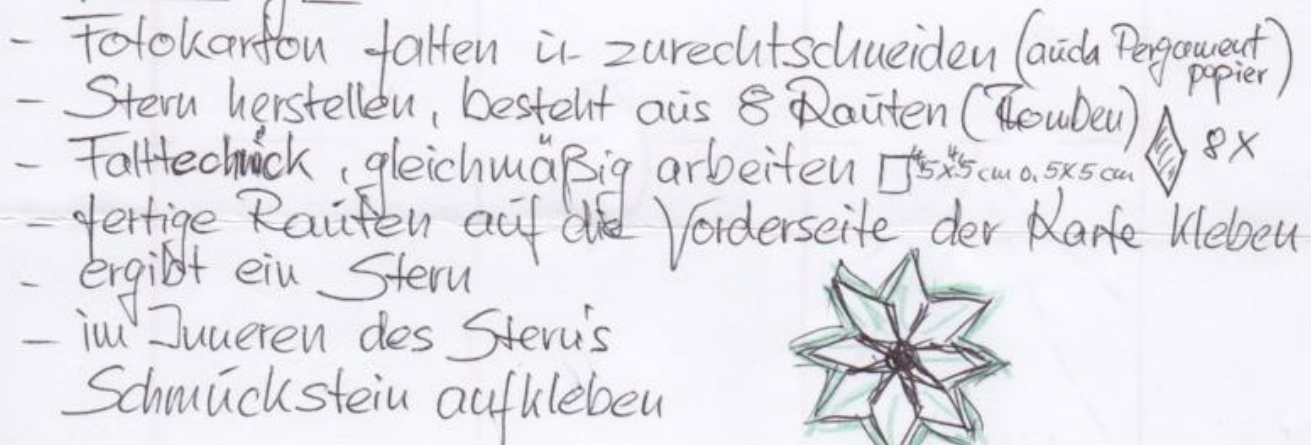 - Fotokarton falten u. zurechtschneiden (auch Pergament
papier)
- Stern herstellen, besteht aus 8 Rauten (Romben)
- Falttechnick, gleichmäßig arbeiten 4,5x4,5 cm o. 5x5 cm 8x
- fertige Rauten auf die Vorderseite der Karte kleben
- ergibt ein Stern
- im Inneren des Stern's
Schmuckstein aufkleben